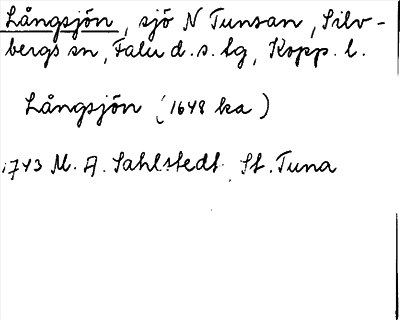 Långsjön, sjö N Tunsan, Silv-
bergs sn, Falu d. s. tg, Kopp. l.
Långsjön (1648 ka)
1743 M. A. Sahlstedt St. Tuna